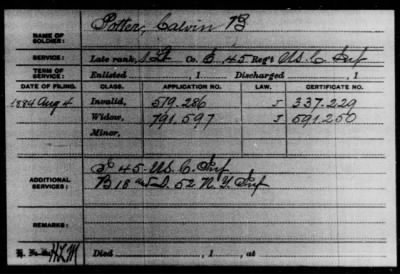 NAME OF SOLDIER: Potter, Calvin B
SERVICE: Late rank, 1 Lt Co. E. 45 Reg't U.S.C. Inf
TERM OF SERVICE: Enlisted , 1 Discharged , 1
DATE OF FILING. CLASS. APPLICATION NO. LAW. CERTIFICATE NO.
1884 Aug 4 Invalid, 519.286 J 337.229
Widow, 791.597 J 591.250
Minor,
ADDITIONAL SERVICES: 45 U.S.C. Inf
B 18 52 N.Y. Inf
REMARKS:
Died , 1 , at